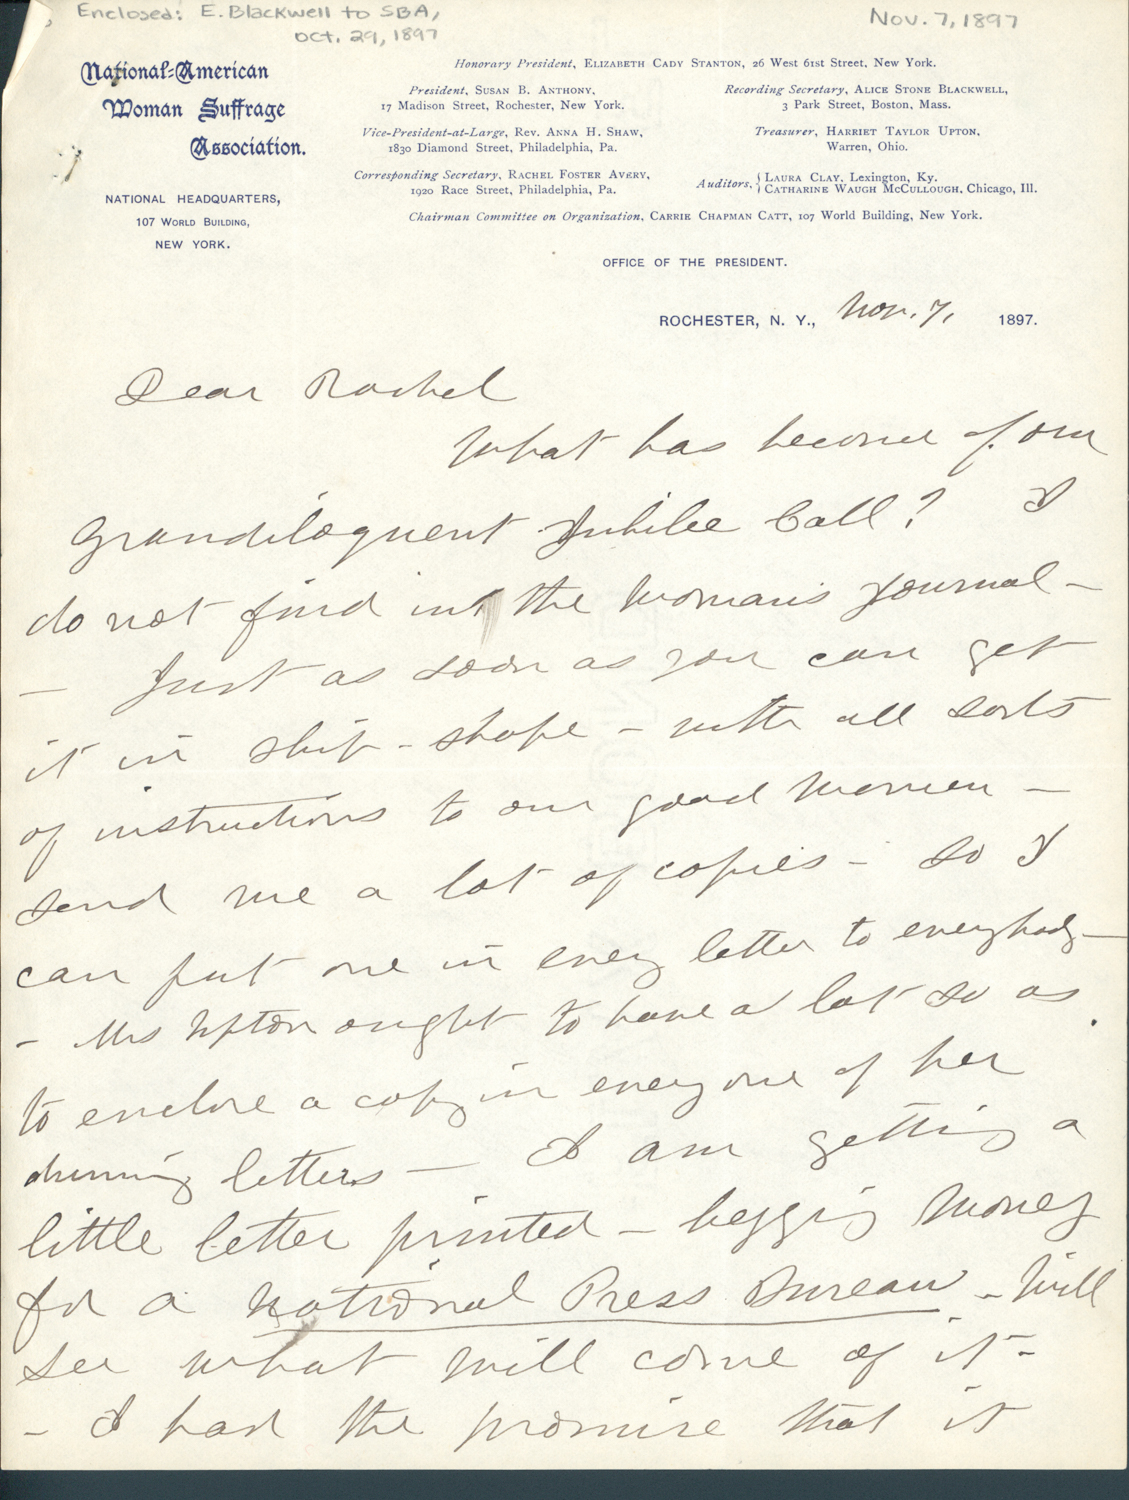 Enclosed: E. Blackwell to SBA,
Oct. 29, 1897
Nov. 7, 1897
National-American
Woman Suffrage
Association.
NATIONAL HEADQUARTERS,
107 WORLD BUILDING,
NEW YORK.
Honorary President, ELIZABETH CADY STANTON, 26 West 61st Street, New York.
President, SUSAN B. ANTHONY,
17 Madison Street, Rochester, New York.
Recording Secretary, ALICE STONE BLACKWELL,
3 Park Street, Boston, Mass.
Vice-President-at-Large, Rev. ANNA H. SHAW,
1830 Diamond Street, Philadelphia, Pa.
Treasurer, HARRIET TAYLOR UPTON,
Warren, Ohio.
Corresponding Secretary, RACHEL FOSTER AVERY,
1920 Race Street, Philadelphia, Pa.
Auditors, { LAURA CLAY, Lexington, Ky.
CATHARINE WAUGH MCCULLOUGH, Chicago, Ill.
Chairman Committee on Organization, CARRIE CHAPMAN CATT, 107 World Building, New York.
OFFICE OF THE PRESIDENT.
ROCHESTER, N. Y., Nov. 7, 1897.
Dear Rachel
What has become of our
grandiloquent Jubilee Call? I
do not find in the Woman's Journal -
- Just as soon as you can get
it in ship-shape - with all sorts
of instructions to our good women -
send me a lot of copies - so I
can put one in every letter to everybody -
- Mrs Upton ought to have a lot so as
to enclose a copy in every one of her
dunning letters - I am getting a
little letter printed - begging money
for a National Press Bureau - Will
see what will come of it -
- I had the promise that it